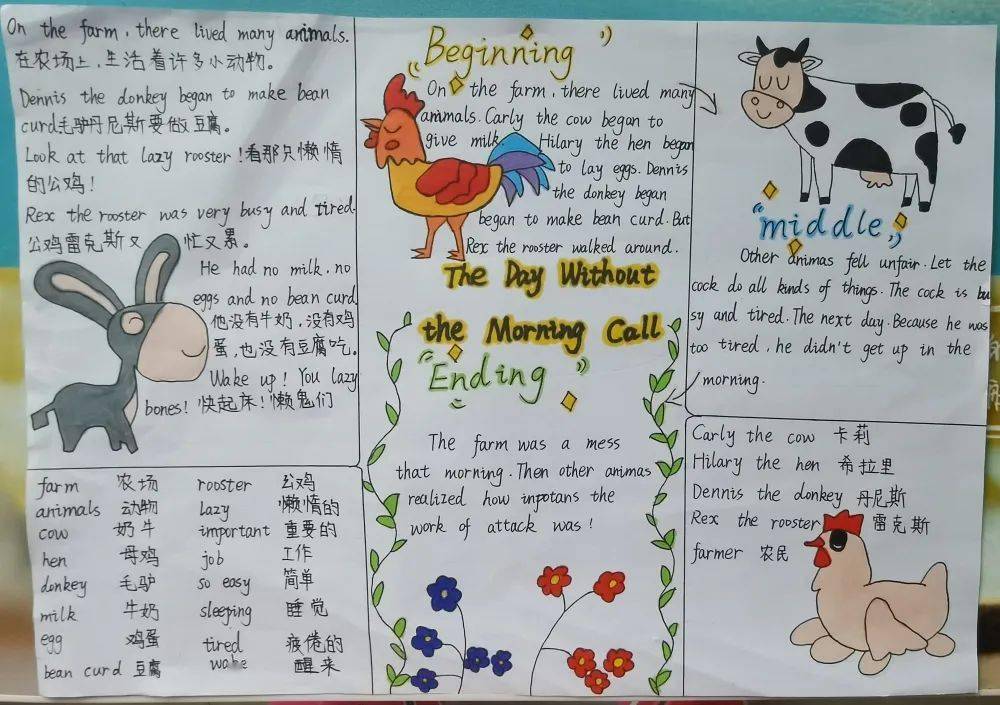 On the farm, there lived many animals.
在农场上,生活着许多小动物。
Dennis the donkey began to make bean
curd毛驴丹尼斯要做豆腐。
Look at that lazy rooster!看那只懒惰
的公鸡!
Rex the rooster was very busy and tired.
公鸡雷克斯又忙又累。
He had no milk, no
eggs and no bean curd
他没有牛奶,没有鸡
蛋,也没有豆腐吃。
Wake up! You lazy
bones! 快起床!懒鬼们
farm 农场 rooster 公鸡
animals 动物 lazy 懒惰的
cow 奶牛 important 重要的
hen 母鸡 job 工作
donkey 毛驴 so easy 简单
milk 牛奶 sleeping 睡觉
egg 鸡蛋 tired 疲倦的
bean curd 豆腐 wake 醒来
"Beginning"
On the farm, there lived many
animals. Carly the cow began to
give milk. Hilary the hen began
to lay eggs. Dennis
the donkey began
began to make bean curd. But
Rex the rooster walked around.
The Day Without
the Morning Call
"Ending"
The farm was a mess
that morning. Then other animas
realized how inpotans the
work of attack was!
"middle"
Other animas fell unfair. Let the
cock do all kinds of things. The cock is bu
sy and tired. The next day. Because he was
too tired, he didn't get up in the
morning.
Carly the cow 卡莉
Hilary the hen 希拉里
Dennis the donkey 丹尼斯
Rex the rooster 雷克斯
farmer 农民